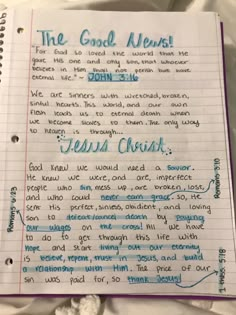 The Good News!
"For God so loved the world that He
gave His one and only son, that whoever
believes in Him shall not perish but have
eternal life." - JOHN 3:16
We are sinners with wretched, broken,
sinful hearts. This world, and our own
flesh leads us to eternal death when
we become slaves to them. The only way
to heaven is through...
Jesus Christ.
God knew we would need a Savior.
He knew we were, and are, imperfect
people who sin, mess up, are broken, lost,
and who could never earn grace. So, He
sent His perfect, sinless, obedient, and loving
son to defeat/conquer death by paying
our wages on the cross! All we have
to do to get through this life with
hope and start living out our eternity
is believe, repent, trust in Jesus, and build
a relationship with Him. The price of our
sin was paid for, so thank Jesus!
Romans 6:23
Romans 5:10